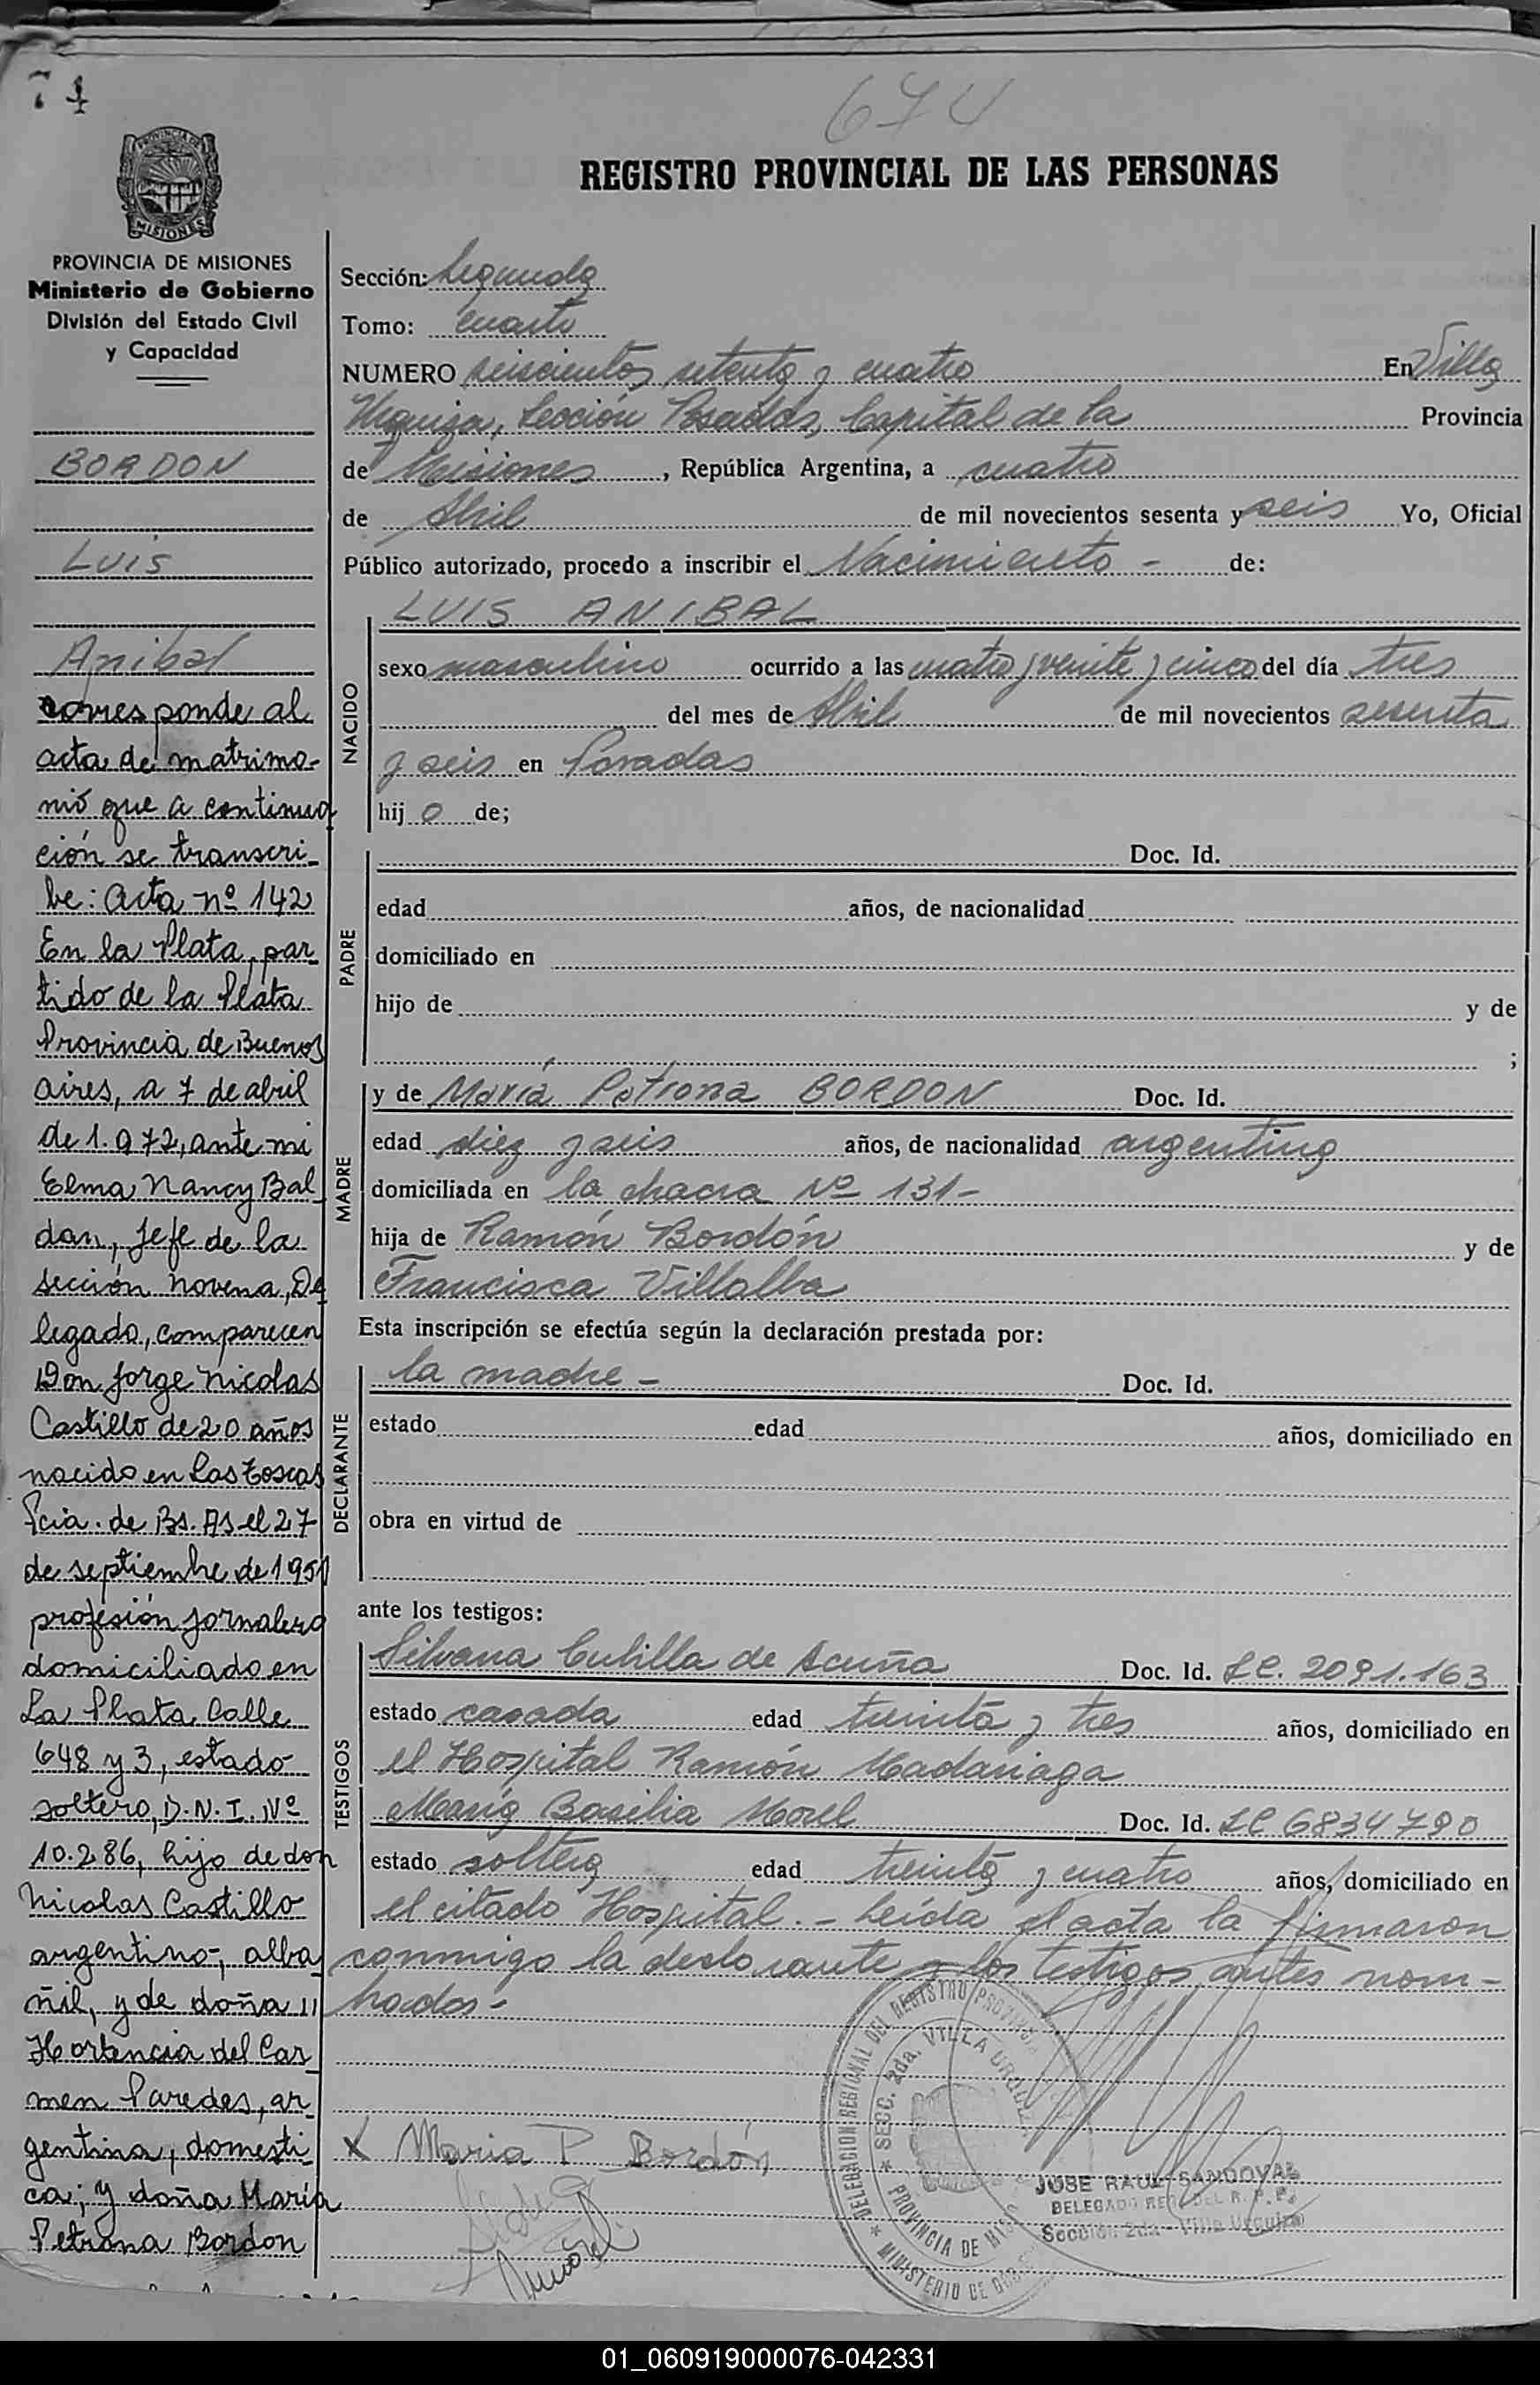 74
674
REGISTRO PROVINCIAL DE LAS PERSONAS
PROVINCIA DE
MISIONES
PROVINCIA DE MISIONES
Ministerio de Gobierno
División del Estado Civil
y Capacidad
BORDON
LUIS
Anibal
corresponde al
acta de matrimo-
nio que a continua
ción se transcri-
be: Acta nº 142
En la Plata, par
tido de la Plata
Provincia de Buenos
aires, a 7 de abril
de 1.972, ante mi
Elma Nancy Bal
dan, Jefe de la
sección novena, De
legado, comparecen
Don Jorge Nicolas
Castillo de 20 años
nacido en Las Toscas
Pcia. de Bs. As el 27
de septiembre de 1951
profesión jornalero
domiciliado en
La Plata Calle
648 y 3, estado
soltero, D.N.I. Nº
10.286, hijo de don
Nicolas Castillo
argentino, alba
ñil, y de doña
Hortencia del Car
men Paredes, ar
gentina, domesti
ca; y doña María
Petrona Bordon
Sección: Segunda
Tomo: cuarto
NUMERO seiscientos setenta y cuatro En Villa
Urquiza, Sección Posadas, Capital de la Provincia
de Misiones, República Argentina, a cuatro
de Abril de mil novecientos sesenta y seis Yo, Oficial
Público autorizado, procedo a inscribir el Nacimiento - de:
NACIDO
LUIS ANIBAL
sexo masculino ocurrido a las cuatro y veinte y cinco del día tres
del mes de Abril de mil novecientos sesenta
y seis en Posadas
hij o de;
PADRE
Doc. Id.
edad años, de nacionalidad
domiciliado en
hijo de y de
;
MADRE
y de María Petrona BORDON Doc. Id.
edad diez y seis años, de nacionalidad argentina
domiciliada en la chacra Nº 131-
hija de Ramón Bordón y de
Francisca Villalba
Esta inscripción se efectúa según la declaración prestada por:
DECLARANTE
la madre - Doc. Id.
estado edad años, domiciliado en
obra en virtud de
ante los testigos:
TESTIGOS
Silvana Cubilla de Acuña Doc. Id. LC. 2091.163
estado casada edad treinta y tres años, domiciliado en
el Hospital Ramón Madariaga
María Basilia Morel Doc. Id. LC 6834790
estado soltera edad treinta y cuatro años, domiciliado en
el citado Hospital. - Leída el acta la firmaron
conmigo la declarante y los testigos antes nom-
brados-
X Maria P Bordón
DELEGACION REGIONAL DEL REGISTRO PROVINCIAL
* SECC. 2da. VILLA URQUIZA
PROVINCIA DE MISIONES
* MINISTERIO DE GOBIERNO
JOSE RAUL SANDOVAL
DELEGADO REG. DEL R. P. P.
Sección 2da - Villa Urquiza
01_060919000076-042331